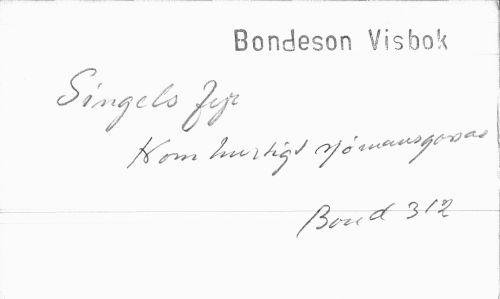 Bondeson Visbok
Singels fyr
Kom hurtigt sjömansgossar
Bond 312